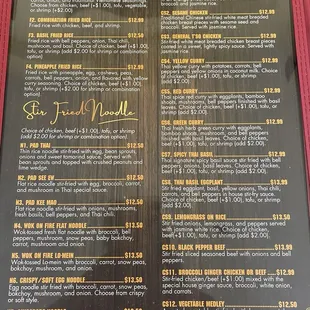 F2. COMBINATION FRIED RICE $12.99
Fried rice with chicken, beef, and shrimp.
F3. BASIL FRIED RICE $12.50
Fried rice with bell peppers, onion, Thai chili,
mushroom, and basil. Choice of chicken, beef (+$1.00)
tofu, or shrimp (add $2.00 for shrimp or combination
option)
F4. PINEAPPLE FRIED RICE $12.99
Fried rice with pineapple, egg, cashews, peas,
carrots, bell peppers, onion, and flavored with yellow
curry seasoning. Choice of chicken, beef (+$1.00),
tofu, or shrimp (+$2.00 for shrimp or combination
option).
Stir Fried Noodle
Choice of chicken, beef (+$1.00), tofu, or shrimp
(add $2.00 for shrimp or combination option)
N1. PAD THAI $12.50
Thin rice noodle stir-fried with egg, bean sprouts,
onions and sweet tamarind sauce. Served with
bean sprouts and topped with crushed peanuts and
lime wedge.
N2. PAD SEE EW $12.50
Flat rice noodle stir-fried with egg, broccoli, carrot,
and mushroom in Thai special sauce.
N3. PAD KEE MAO $12.50
Flat rice noodle stir-fried with onions, mushrooms,
fresh basil, bell peppers, and Thai chili.
N4. WOK ON FIRE FLAT NOODLE $13.50
Wok-tossed fresh flat noodle with broccoli, bell
peppers, mushroom, snow peas, baby bokchoy,
carrot, mushroom and onion.
N5. WOK ON FIRE LO-MEIN $13.50
Wok-tossed Lo-mein with broccoli, carrot, snow pea,
mushroom, and onion.
N6. CRISPY/SOFT EGG NOODLE $13.50
Egg noodle stir fried with broccoli, carrot, snow peas,
mushroom, and onion. Choose from crispy
or soft style.
CS2. SESAME CHICKEN $12.99
Traditional Chinese stir-fried white meat breaded
chicken breast pieces with sesame seed and
broccoli. Served with jasmine rice.
CS3. GENERAL T'SO CHICKEN $12.99
Stir-fried white meat breaded chicken breast pieces
covered in a sweet, lightly spicy sauce. Served with
jasmine rice.
CS4. YELLOW CURRY $12.50
Thai yellow curry with potatoes, carrots, bell
peppers and yellow onions in coconut milk. Choice
of chicken, beef (+$1.00), tofu, or shrimp
(add $2.00).
CS5. RED CURRY $12.50
Thai spice red curry with eggplants, bamboo
shoots, mushrooms, bell peppers finished with basil
leaves. Choice of chicken, beef (+$1.00), tofu, or
shrimp (add $2.00).
CS6. GREEN CURRY $12.50
Thai fresh herb green curry with eggplants,
bamboo shoots, mushroom, and bell peppers
finished with basil leaves. Choice of chicken,
beef (+$1.00), tofu, or shrimp (add $2.00).
CS7. SPICY THAI BASIL $12.99
Thai signature spicy basil sauce stir fried with bell
peppers, onions, basil leaves. Choice of chicken,
beef (+$1.00), tofu, or shrimp (add $2.00).
CS8. THAI BASIL EGGPLANT $12.99
Stir fried eggplant, basil, yellow onions, Thai chili,
carrots, and bell peppers in house stir-fry sauce.
Choice of chicken, beef (+$1.00), tofu, or shrimp
(add $2.00).
CS9. LEMONGRASS ON RICE $13.50
Stir fried onions, lemongrass, and peppers served
with jasmine white rice. Choice of chicken,
beef(+$1.00), tofu, or shrimp (add $2.00).
CS10. BLACK PEPPER BEEF $12.99
Stir fried sliced seasoned beef with onions and bell
peppers.
CS11. BROCCOLI GINGER CHICKEN OR BEEF $12.99
Chicken/beef(+$1.00) mixed with the special
house ginger sauce, broccoli, white onion, and
carrots.
CS12. VEGETABLE MEDLEY $12.50